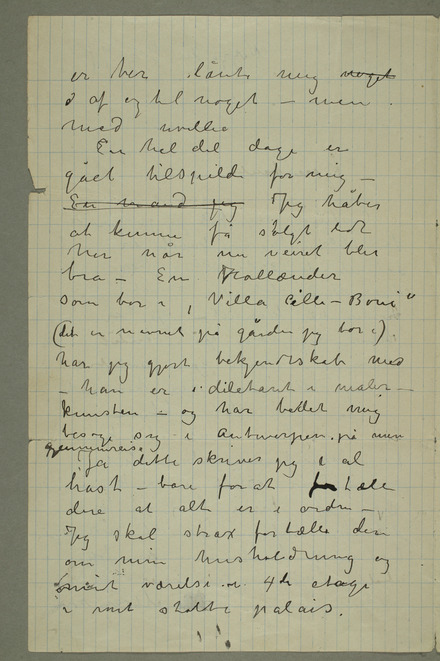 er her . lånte mig noget
d af og til noget – men
mod uvillie
En hel del dage er
gået tilspilde for mig –
En mand jeg Jeg håber
at kunne få solgt lidt
her når nu veiret blir
bra – En Hollænder
som bor i „Villa Cille-Boni"
(det er navnet på gården jeg bor i)
har jeg gjort bekjendtskab med
– han er i diletant i maler-
kunsten – og har bedt mig
besøge sig i Antwerpen på min
gjennemreise.
Ja dette skriver jeg i al
hast – bare for at fortælle
dere at alt er i orden –
Jeg skal strax fortælle dere
om min husholdning og
mit værelse i 4de etage
i mit stolte palais.